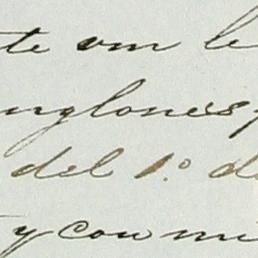 te om le
nglones
del 1.º d
y con mi